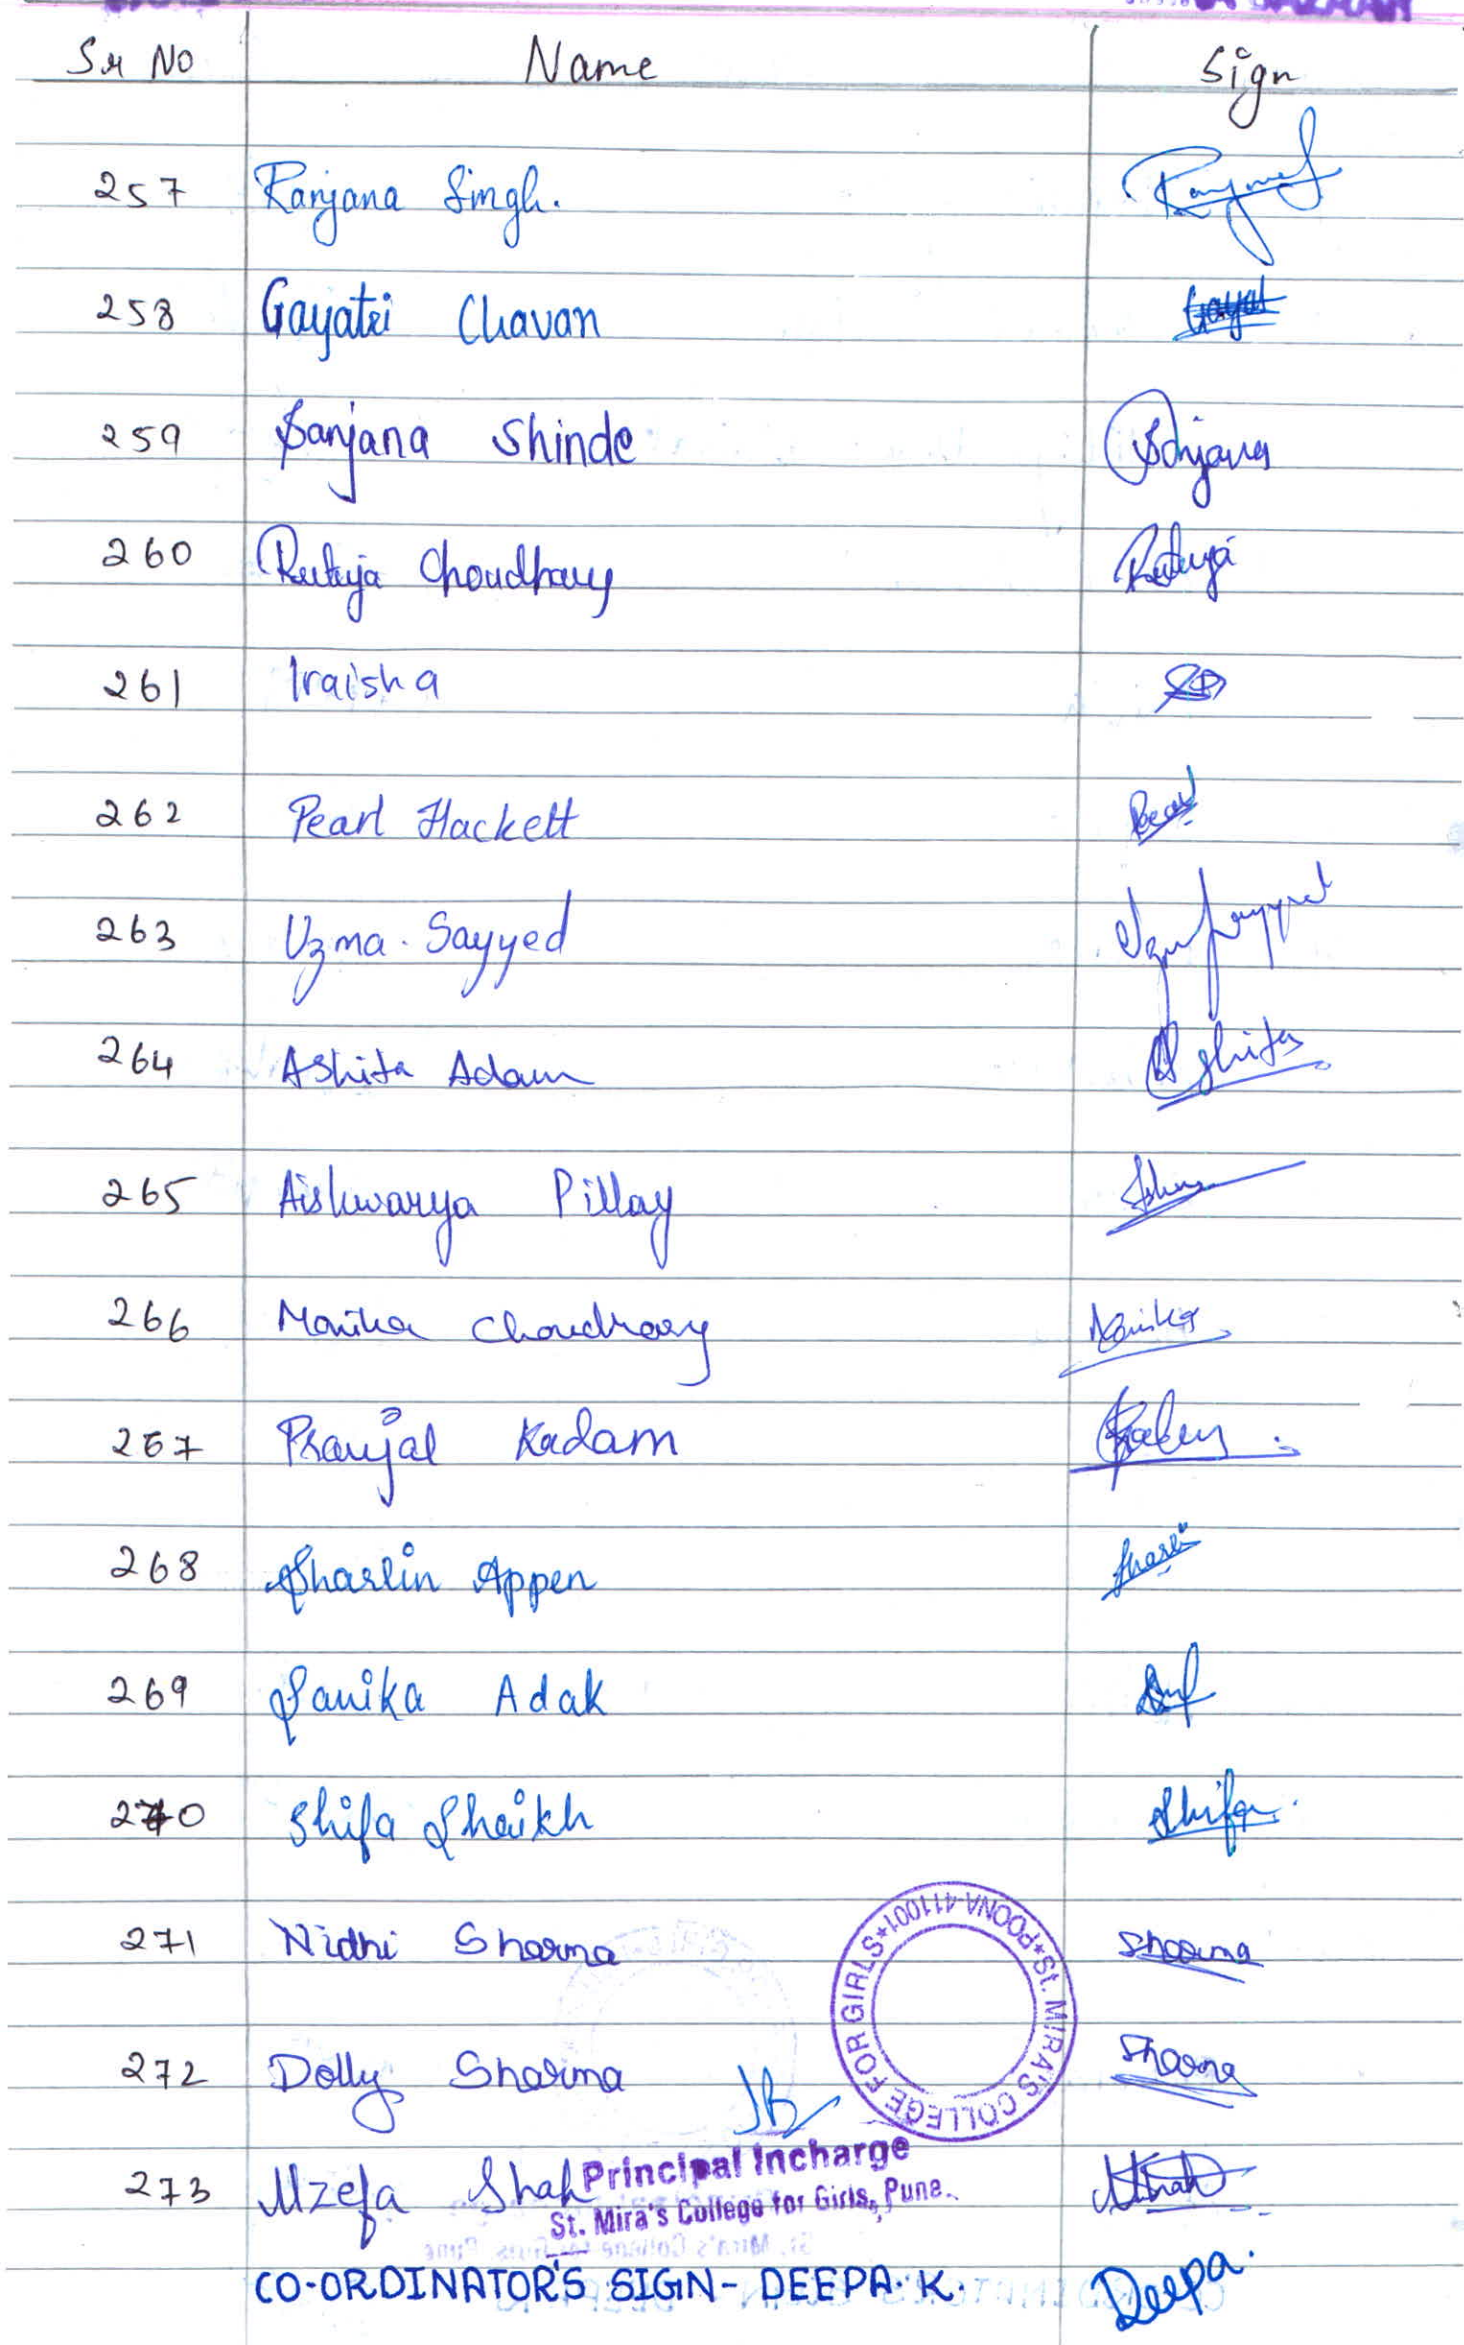 Sr No Name Sign
257 Ranjana Singh.
258 Gayatri Chavan Gayat
259 Sanjana Shinde Sanjana
260 Rutuja Choudhary Rutuja
261 Iraisha
262 Pearl Hackett Pearl
263 Uzma. Sayyed
264 Ashita Adam Ashita
265 Aishwarya Pillay
266 Monika Choudhary Monika
267 Pranjal Kadam
268 Sharlin Appen
269 Sanika Adak
270 Shifa Shaikh Shifa.
271 Nidhi Sharma Sharma
272 Dolly Sharma Sharma
St. MIRA'S COLLEGE FOR GIRLS*POONA-411001*
273 Mzefa Shah
Principal Incharge
St. Mira's College for Girls, Pune.
CO-ORDINATOR'S SIGN- DEEPA. K. Deepa.